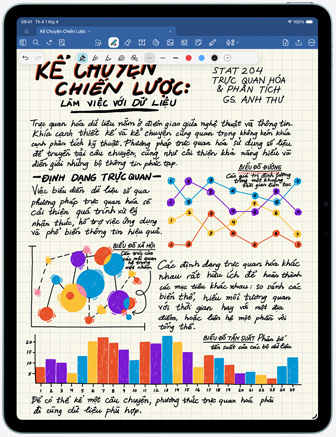 09:41 Thứ 4 1 thg 4
100%
Kể Chuyện Chiến Lược
KỂ CHUYỆN
CHIẾN LƯỢC:
LÀM VIỆC VỚI DỮ LIỆU
STAT 204
TRỰC QUAN HÓA
& PHÂN TÍCH
GS. ANH THƯ
Trực quan hóa dữ liệu nằm ở điểm giao giữa nghệ thuật và thông tin.
Khía cạnh thiết kế và kể chuyện cũng quan trọng không kém khía
cạnh phân tích kỹ thuật. Phương pháp trực quan hóa sử dụng số liệu
để truyền tải câu chuyện, cũng như cải thiện khả năng hiểu và
diễn giải những bộ thông tin phức tạp.
ĐỊNH DẠNG TRỰC QUAN
Việc biểu diễn dữ liệu số qua
phương pháp trực quan hóa sẽ
cải thiện quá trình xử lý
nhận thức, hỗ trợ việc ứng dụng
và phổ biến thông tin hiệu quả.
BIỂU ĐỒ ĐƯỜNG
Các giá trị định lượng
trong một khoảng
thời gian liên tục
BIỂU ĐỒ XÃ HỘI
Cấu trúc của
các mối quan
hệ trong
một nhóm
Các định dạng trực quan hóa khác
nhau rất hữu ích để hoàn thành
các mục tiêu khác nhau: so sánh các
biến thể, hiểu mối tương quan
với thời gian hay với một địa
điểm, hoặc liên hệ một phần với
tổng thể.
BIỂU ĐỒ TẦN SUẤT Phân bố
tần suất của các bộ dữ liệu
20
15
10
5
1 2 3 4 5 6 7 8 9 10 11 12 13 14 15 16 17 18 19 20 21 22 23 24
Để có thể kể một câu chuyện, phương thức trực quan hóa phải
đi cùng dữ liệu phù hợp.